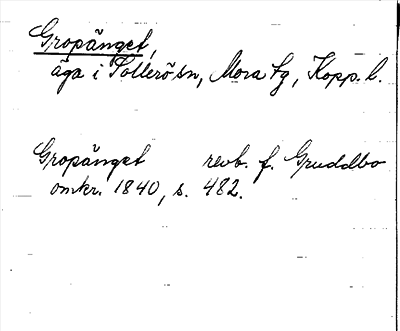 Gropänget,
äga i Sollerö sn, Mora tg, Kopp. l.
Gropänget revb. f. Gruddbo
omkr. 1840, s. 482.